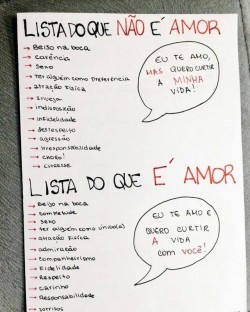 LISTA DO QUE NÃO É AMOR
→ Beijo na boca
→ carência
→ Sexo
→ ter alguém como preferência
→ atração física
→ Inveja
→ indisposição
→ infidelidade
→ desrespeito
→ agressão
→ irresponsabilidade
→ choro!
→ interesse.
EU TE AMO,
MAS QUERO CURTIR
A MINHA
VIDA!
LISTA DO QUE É AMOR
→ Beijo na boca
→ Sexo
→ ter alguém como único(a)
→ atração física
→ admiração
→ companheirismo
→ Fidelidade
→ Respeito
→ carinho
→ Responsabilidade
→ sorrisos
EU TE AMO E
QUERO CURTIR
A VIDA
COM VOCÊ!